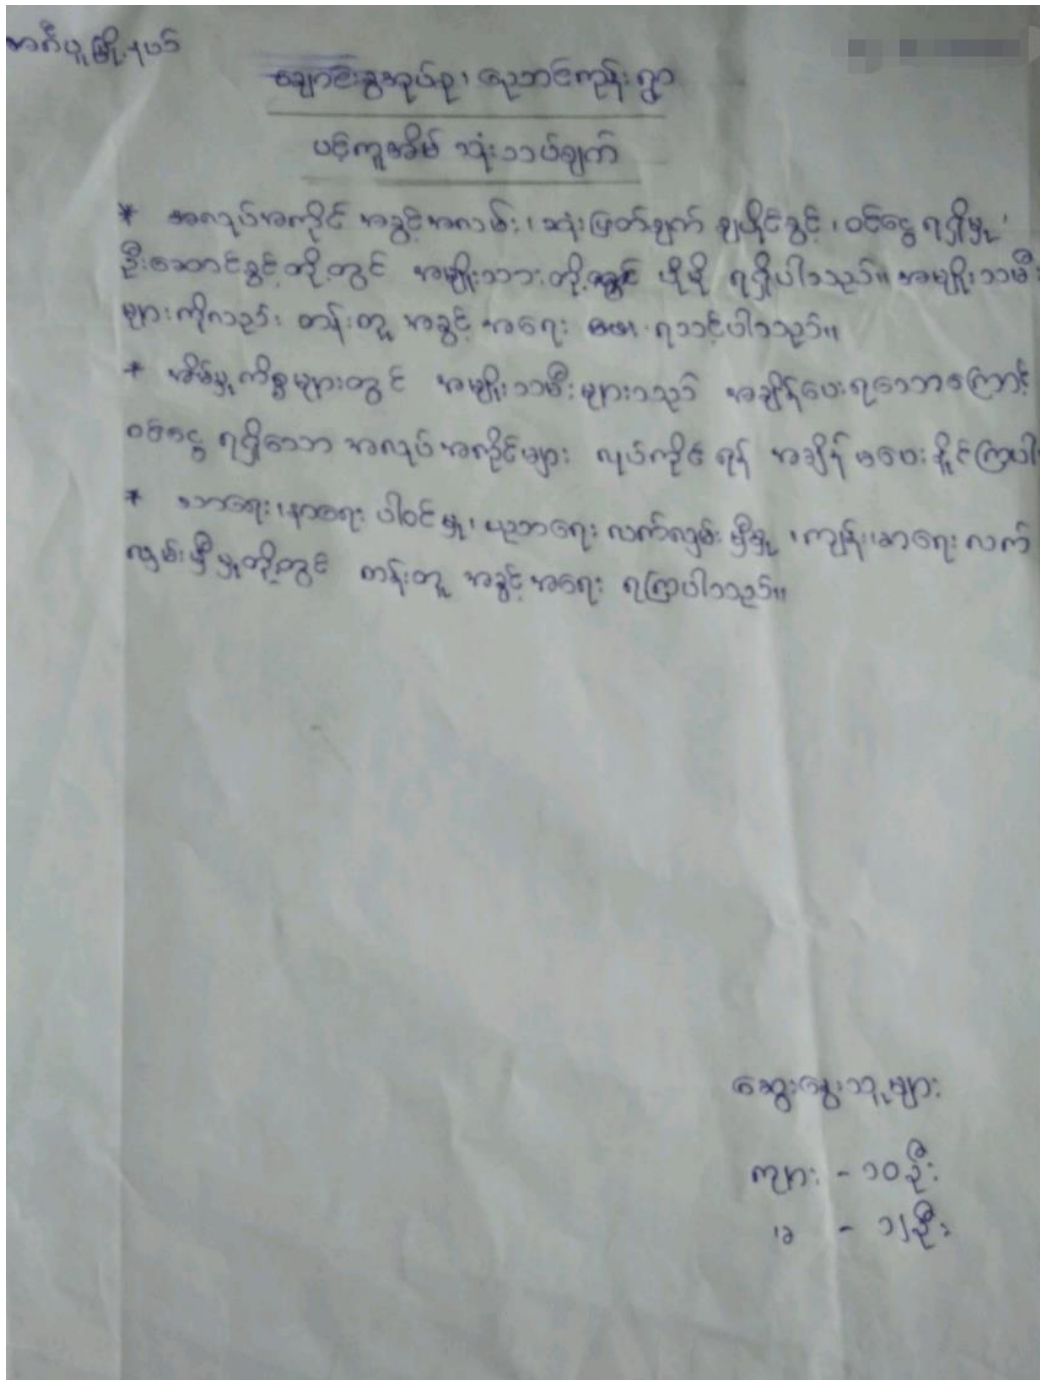 အင်္ဂပူမြို့နယ်
ချောင်းခွအုပ်စု၊ ညောင်ကုန်းရွာ
ပင့်ကူအိမ် သုံးသပ်ချက်
* အလုပ်အကိုင် အခွင့်အလမ်း၊ ဆုံးဖြတ်ချက် ချပိုင်ခွင့်၊ ဝင်ငွေ ရရှိမှု၊
ဦးဆောင်ခွင့်တို့တွင် အမျိုးသားတို့ ပိုမို ရရှိပါသည်။ အမျိုးသမီး
များကိုလည်း တန်းတူ အခွင့် အရေး ပေး ရသင့်ပါသည်။
* အိမ်မှုကိစ္စများတွင် အမျိုးသမီးများသည် အချိန်ပေးရသောကြောင့်
ဝင်ငွေ ရရှိသော အလုပ်အကိုင်များ လုပ်ကိုင်ရန် အချိန် မပေးနိုင်ကြပါ
* သာရေး၊ နာရေး ပါဝင်မှု၊ ပညာရေး လက်လှမ်းမှီမှု၊ ကျန်းမာရေး လက်
လှမ်းမှီမှုတို့တွင် တန်းတူ အခွင့်အရေး ရကြပါသည်။
ဆွေးနွေးသူများ
ကျား - ၁၀ဦး
မ - ၁၂ဦး